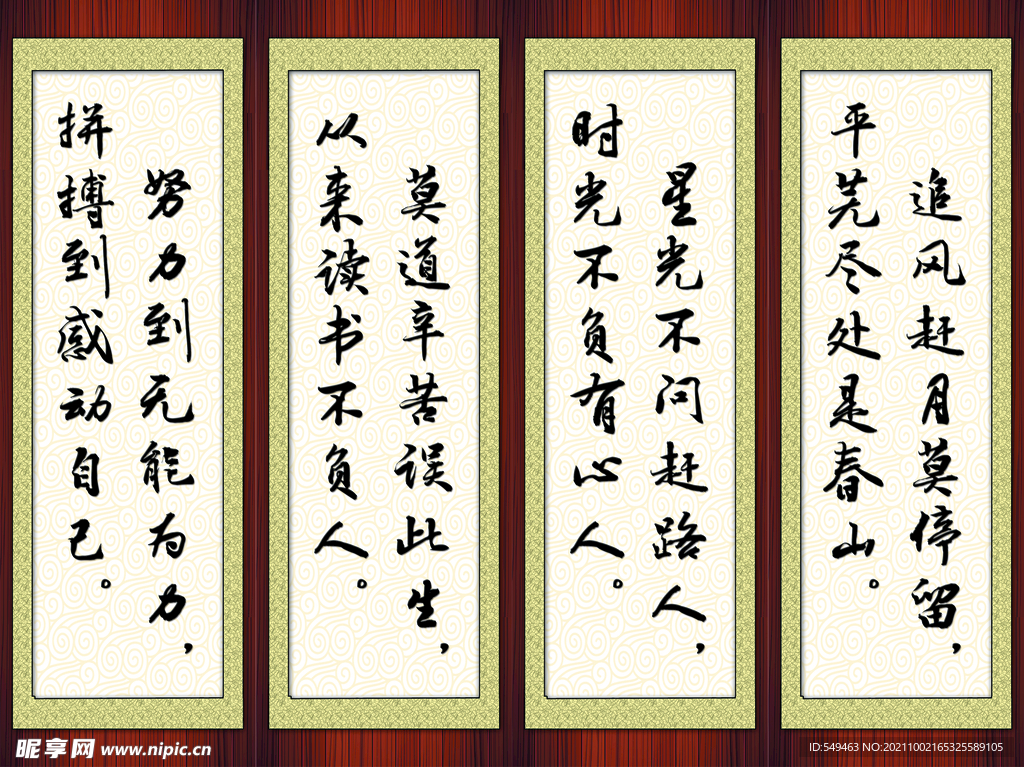 追风赶月莫停留，
平芜尽处是春山。
星光不问赶路人，
时光不负有心人。
莫道辛苦误此生，
从来读书不负人。
努力到无能为力，
拼搏到感动自己。
昵享网 www.nipic.cn
ID:549463 NO:20211002165325589105